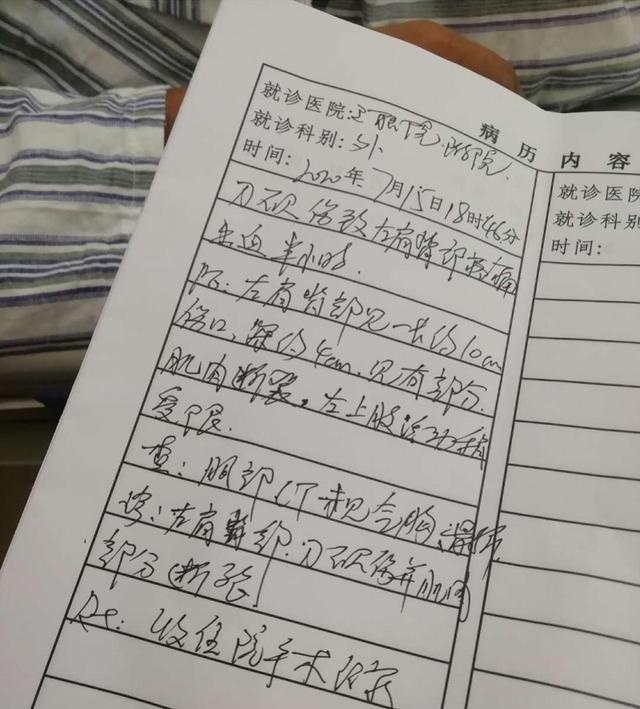 病 历 内 容
就诊医院:
就诊科别: 外
时间: 2020年7月15日18时46分
刀砍伤致左肩背部疼痛
出血半小时.
左肩背部见一长约10cm
伤口,深约4cm,见有部分
肌肉断裂,左上肢活动稍
受限.
查: 胸部CT未见气胸
诊:左肩背部刀砍伤并肌肉
部分断裂
Rx: 收住院手术
就诊医院
就诊科别
时间: